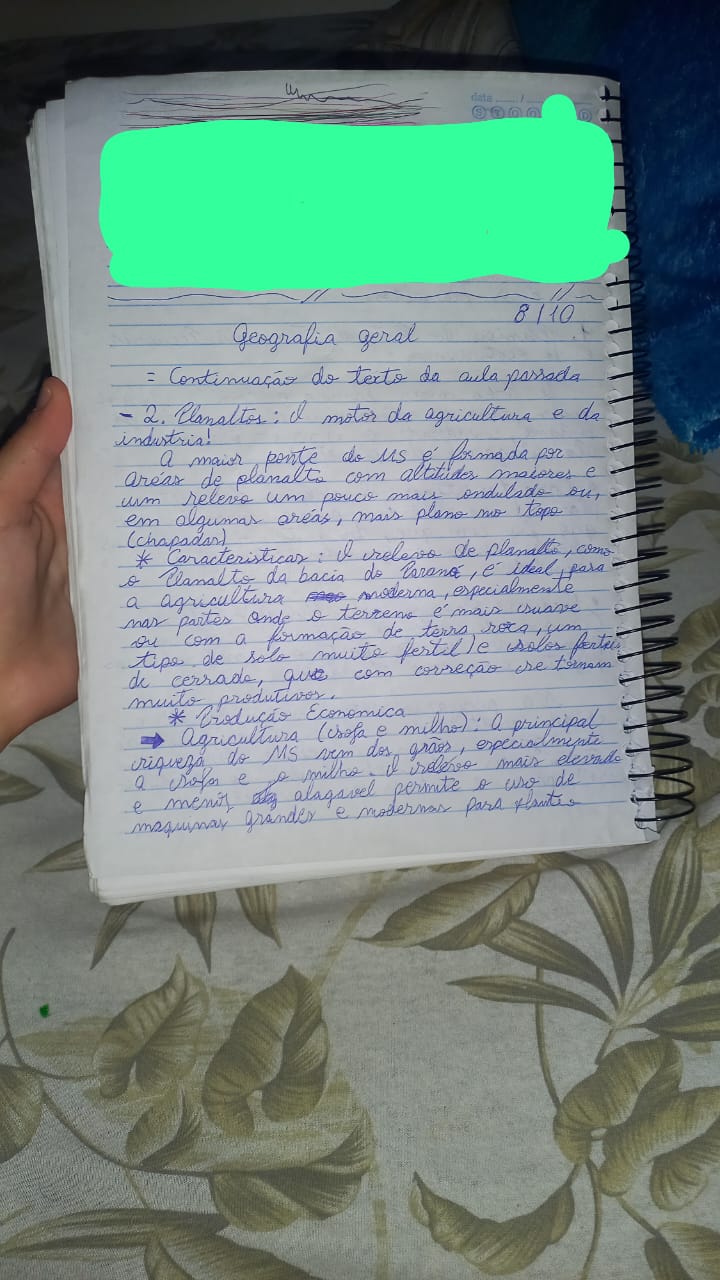 data ___/___
8/10
Geografia geral
= Continuação do texto da aula passada
- 2. Planaltos: O motor da agricultura e da
industria!
A maior ponte do MS é formada por
areás de planalto com altitudes maiores e
um relevo um pouco mais ondulado ou,
em algumas areás, mais plano no topo
(chapadas)
* Caracteristicas: O relevo de planalto, como
o Planalto da bacia do Paraná, é ideal para
a agricultura moderna, especialmente
nas partes onde o terreno é mais suave
ou com a formação de terra roxa, um
tipo de solo muito fertil) e solos ferteis
de cerrado, que com correção se tornam
muito produtivos.
* Produção Economica
→ Agricultura (soja e milho): A principal
riqueza do MS vem dos grãos, especialmente
a soja e o milho. O relevo mais elevado
e menos alagavel permite o uso de
maquinas grandes e modernas para plantio